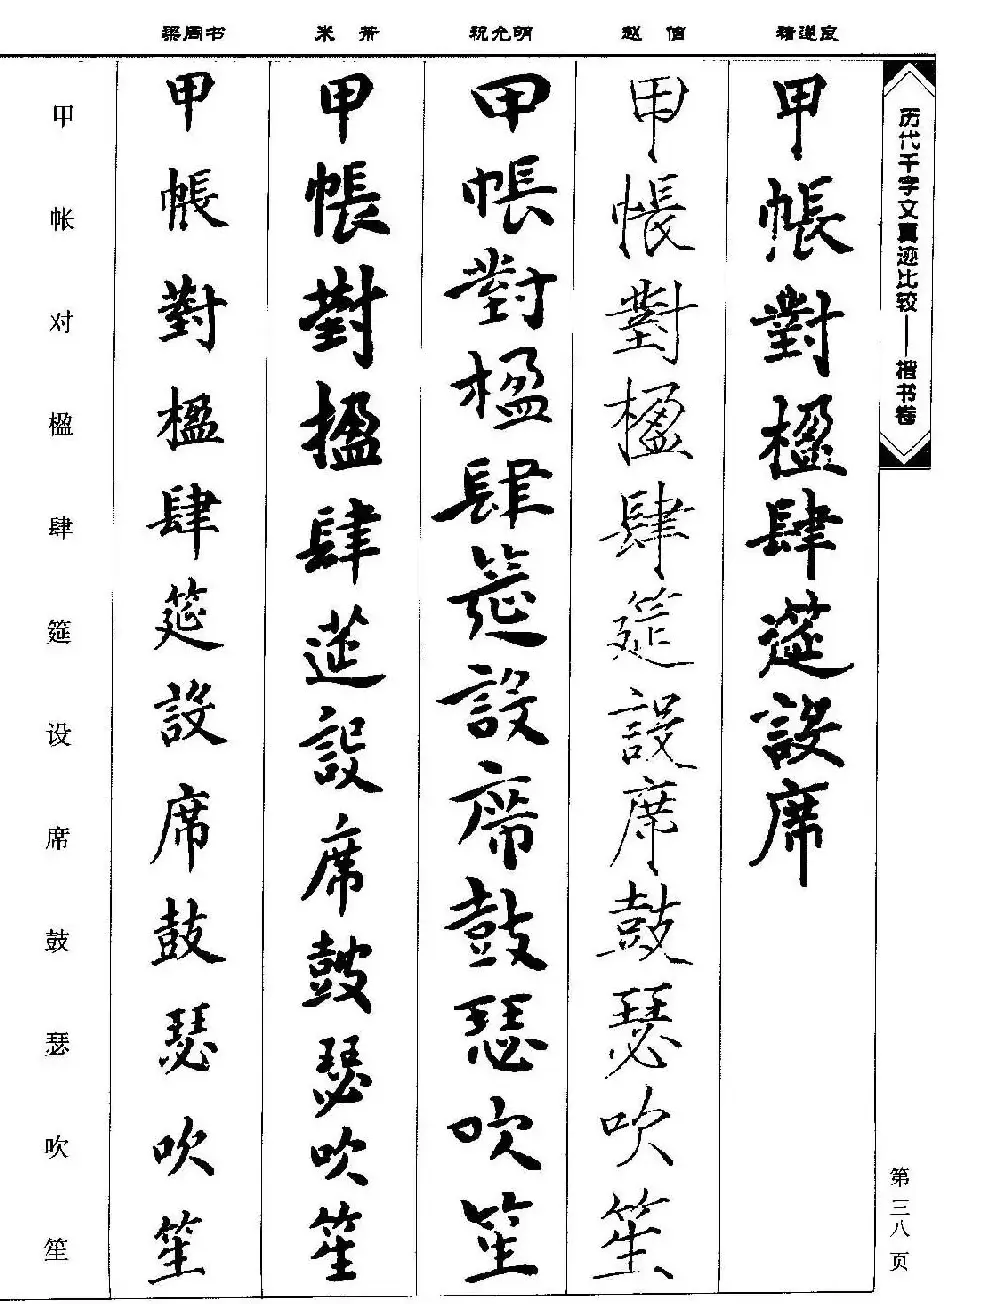 历代千字文真迹比较——楷书卷
第三八页
褚遂良
甲帳對楹肆筵設席
赵佶
甲帳對楹肆筵設席鼓瑟吹笙
祝允明
甲帳對楹肆筵設席鼓瑟吹笙
米芾
甲帳對楹肆筵設席鼓瑟吹笙
梁同书
甲帳對楹肆筵設席鼓瑟吹笙
甲帐对楹肆筵设席鼓瑟吹笙